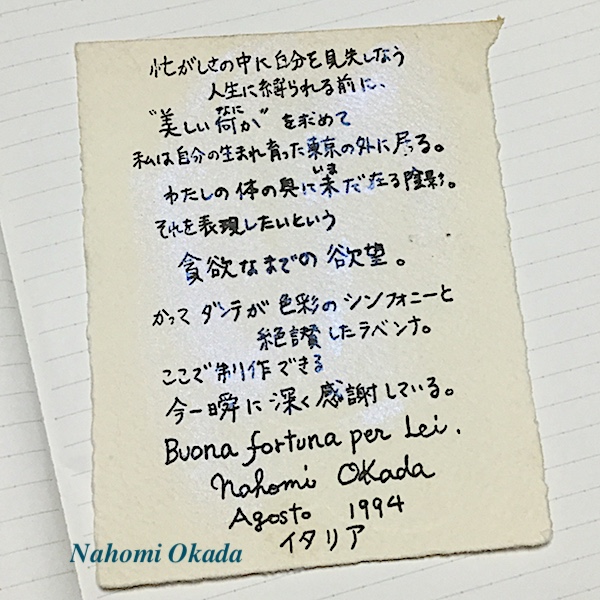 忙がしさの中に自分を見失しなう
人生に縛られる前に、
"美しい何(なに)か"を求めて
私は自分の生まれ育った東京の外に居る。
わたしの体の奥に未(いま)だ在る陰影。
それを表現したいという
貪欲なまでの欲望。
かつてダンテが色彩のシンフォニーと
絶讃したラベンナ。
ここで制作できる
今一瞬に深く感謝している。
Buona fortuna per Lei.
Nahomi Okada
Agosto 1994
イタリア
Nahomi Okada